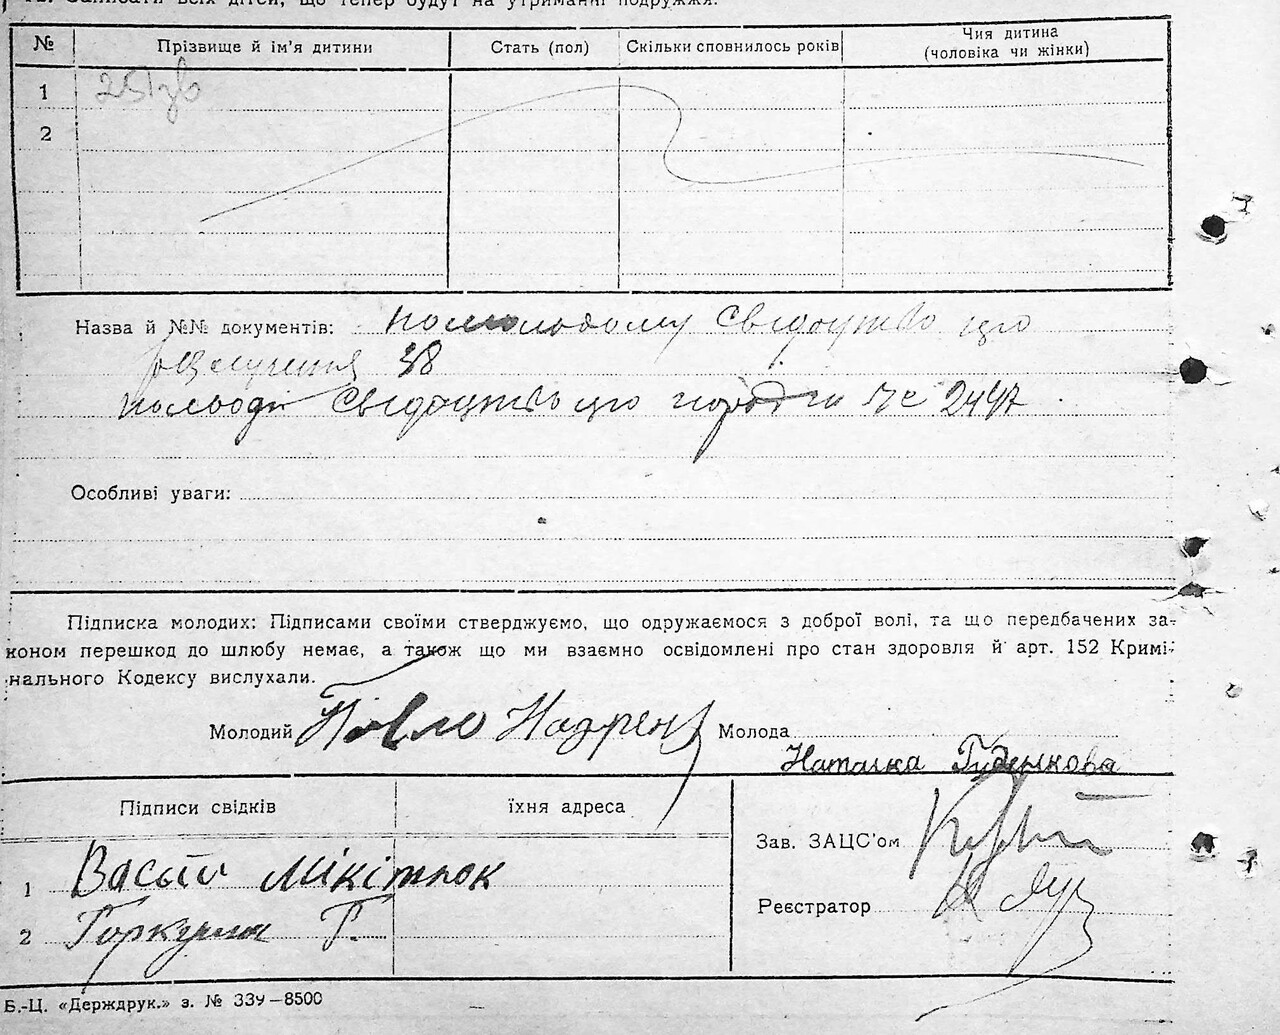 12. Записати всіх дітей, що тепер будут на утриманні подружжя.
№ Прізвище й ім'я дитини Стать (пол) Скільки сповнилось років Чия дитина (чоловіка чи жінки)
1
2
Назва й №№ документів: по молодому свідоцтво про
розлучення 38
по молоді свідоцтво про № 2497
Особливі уваги:
Підписка молодих: Підписами своїми стверджуємо, що одружаємося з доброї волі, та що передбачених за-
коном перешкод до шлюбу немає, а також що ми взаємно освідомлені про стан здоровля й арт. 152 Кримі-
нального Кодексу вислухали.
Молодий Павло Молода
Наталка Гуденкова
Підписи свідків їхня адреса
Зав. ЗАЦС'ом
1 Васыл Мікітюк
Реєстратор
2 Г.
Б.-Ц. «Держдрук.» з. № 339—8500